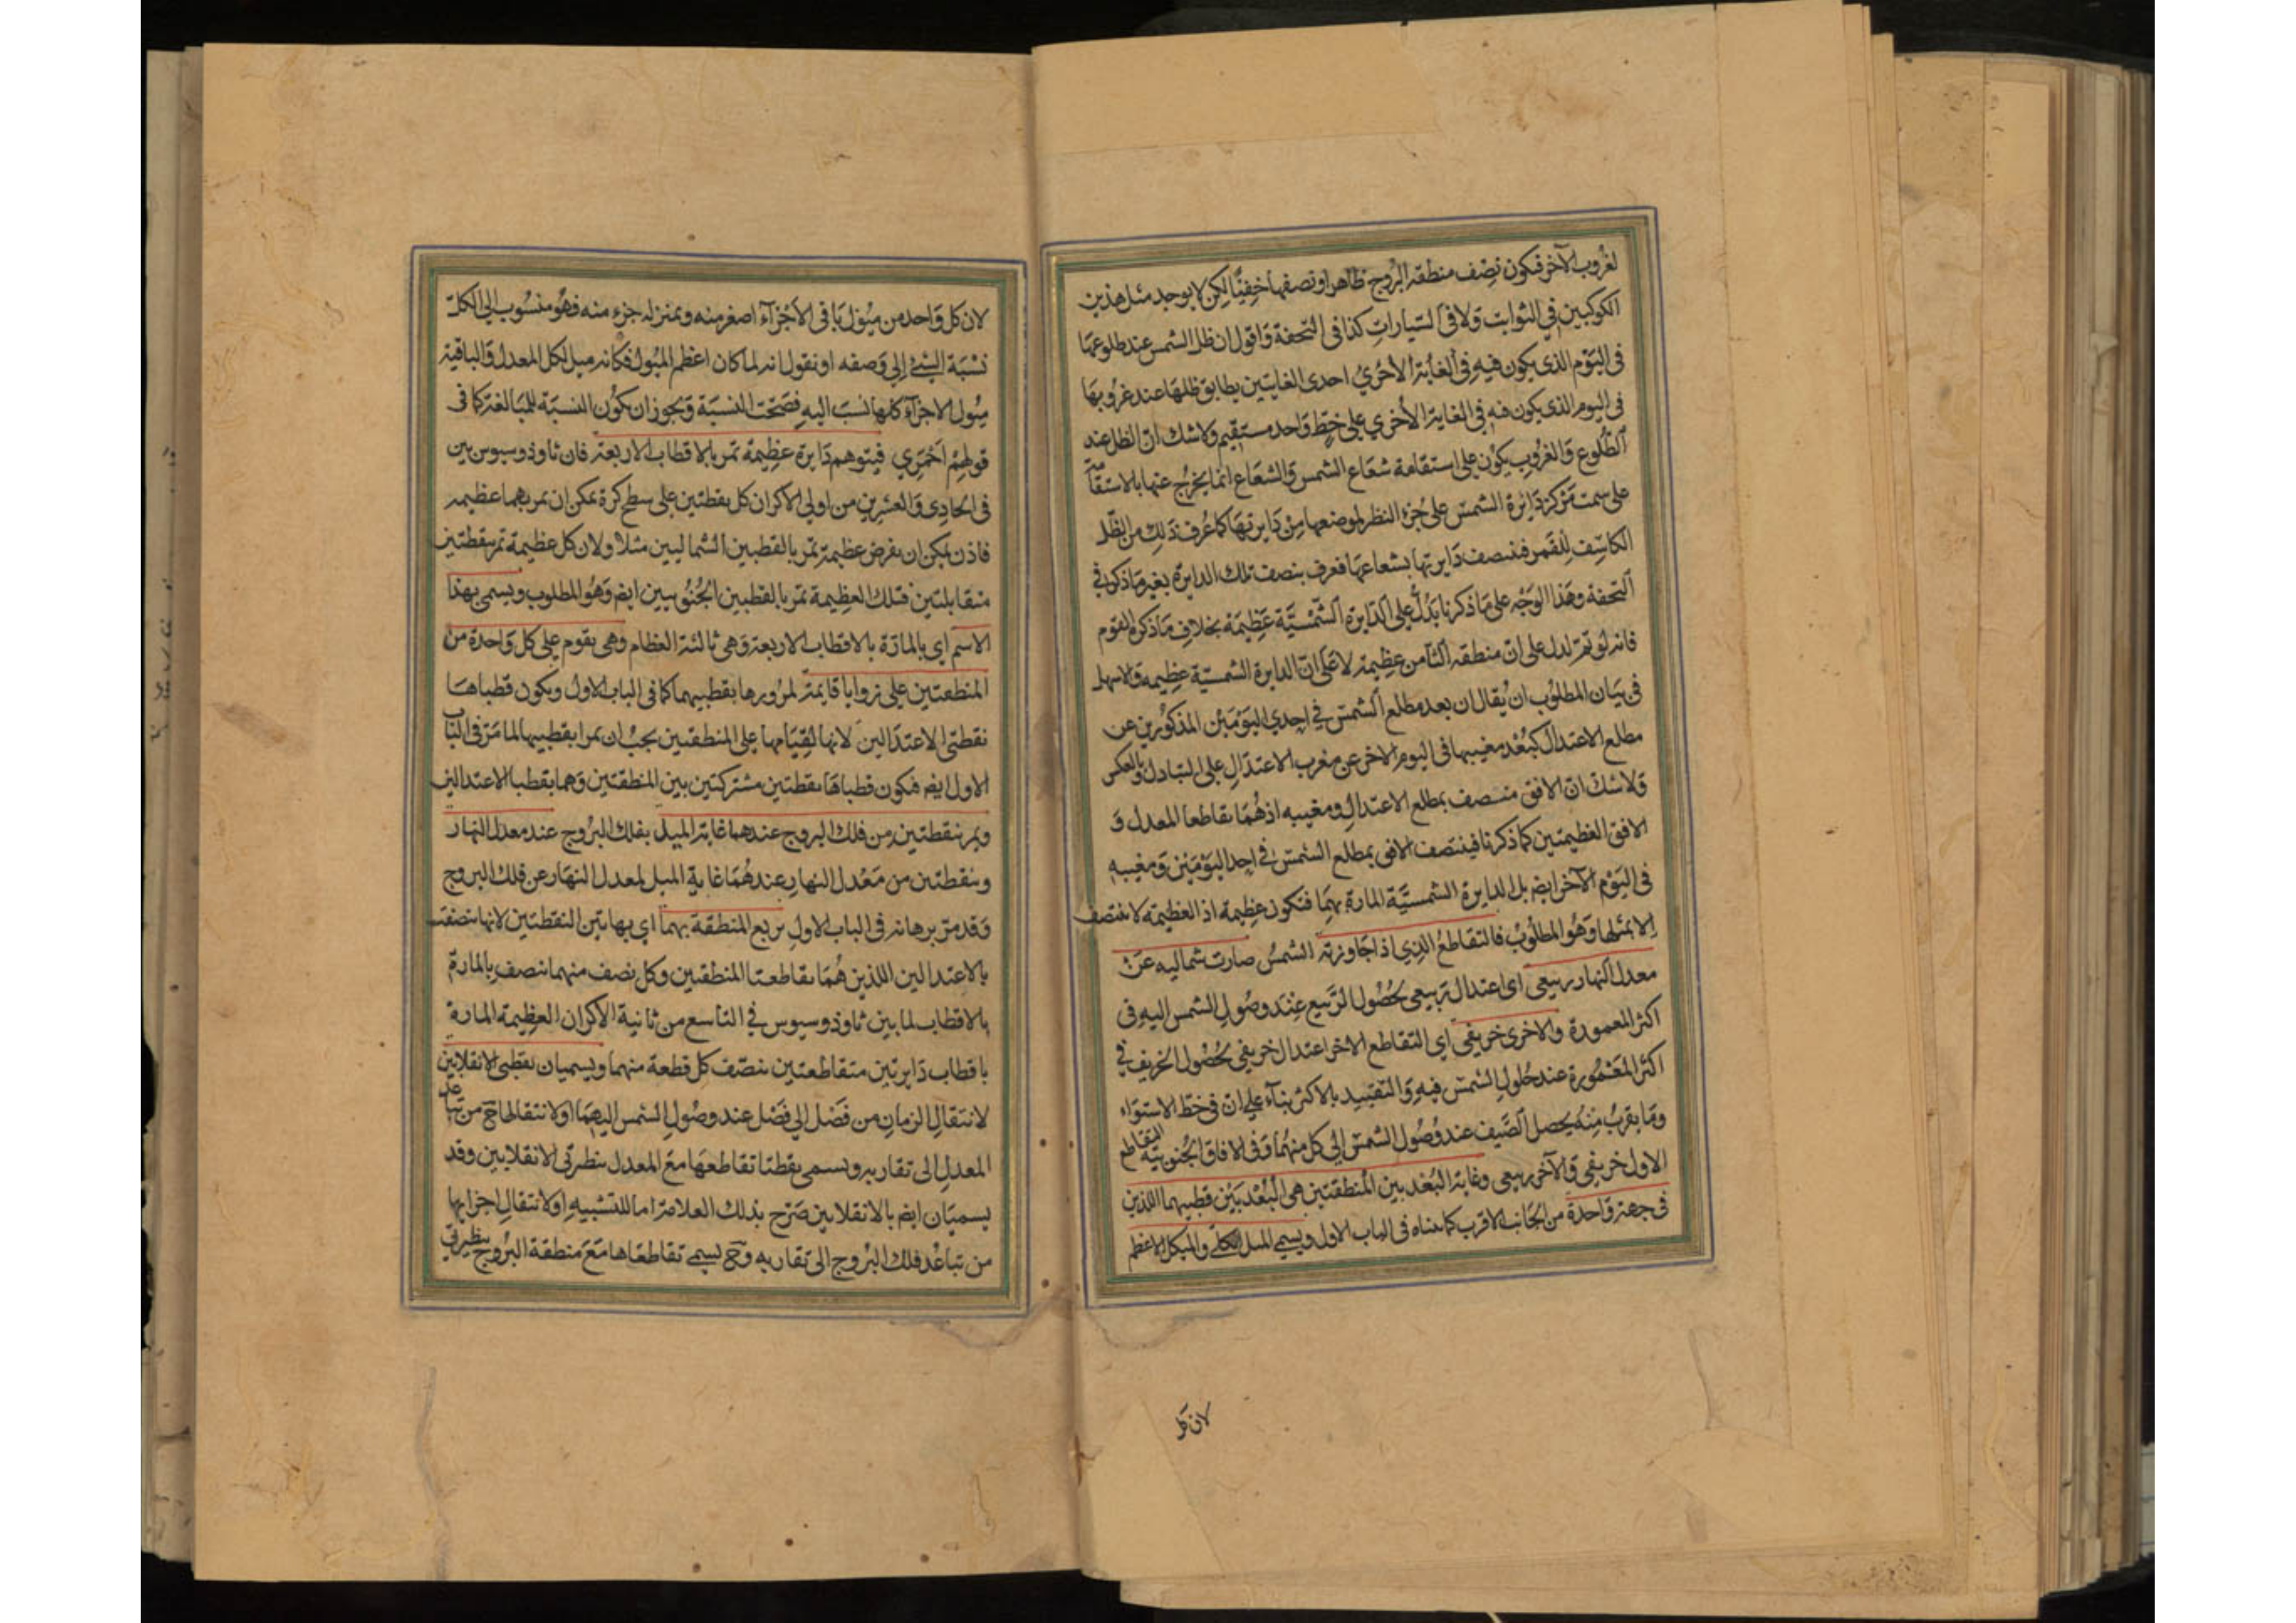 لغروب الآخر فيكون نصف منطقة البروج ظاهرا ونصفها خفيًا لكن لا يوجد مثل هذين
الكوكبين في الثوابت ولا في السيارات كذا في التحفة واقول ان ظل الشمس عند طلوعها
في اليوم الذي يكون فيه في الغاية الأخرى احدى الغايتين يطابق ظلها عند غروبها
في اليوم الذي يكون فيه في الغاية الأخري على خط واحد مستقيم ولا شك ان الظل عند
الطلوع والغروب يكون على استقامة شعاع الشمس والشعاع انما يخرج عنها بالاستقامة
على سمت مركز دايرة الشمس على جزء النظر لموضعها من دايرتها كما عرف ذلك من الظل
الكاسف للقمر فنصف دايرتها بشعاعها فعرف بنصف تلك الدايرة بغير ما ذكر في
التحفة وهذا الوجه على ما ذكرنا يدل على الدايرة الشمسية عظيمة بخلاف ما ذكره القوم
فانه لو تم لدل على ان منطقة الثامن عظيمة لا على ان الدايرة الشمسية عظيمة والاسهل
في بيان المطلوب ان يقال ان بعد مطلع الشمس في احدي اليومين المذكورين عن
مطلع الاعتدال كبعد مغيبها في اليوم الاخر عن مغرب الاعتدال على التبادل وبالعكس
ولا شك ان الافق منصف بمطلع الاعتدال ومغيبه اذ هما تقاطعا المعدل و
الافق العظيمتين كما ذكرنا فينتصف الافق بمطلع الشمس في احد اليومين ومغيبه
في اليوم الآخر ايضا بل الدايرة الشمسية المارة بهما فتكون عظيمة اذ العظيمة لا تنتصف
الا بمثلها وهو المطلوب فالتقاطع الذي اذا جاوزته الشمس صارت شمالية عن
معدل النهار ربيعي اى اعتدال ربيعي لحصول الربيع عند وصول الشمس اليه في
اكثر المعمورة والاخرى خريفي اي التقاطع الاخر اعتدال خريفي لحصول الخريف في
اكثر المعمورة عند حلول الشمس فيه والتقييد بالاكثر بناء على ان في خط الاستواء
وما يقرب منه يحصل الصيف عند وصول الشمس الى كل منهما وفي الافاق الجنوبية التقاطع
الاول خريفي والآخر ربيعي وغاية البعد بين المنطقتين هي البعد بين قطبيهما اللذين
في جهة واحدة من الجانب الاقرب كما بيناه في الباب الاول ويسمى الميل الكلي والميل الاعظم
لان كل
لان كل واحد من ميول باقي الأجزاء اصغر منه وبمنزلة جزء منه فهو منسوب الى الكل
نسبة الشيء إلى وصفه او نقول انه لما كان اعظم الميول فكانه ميل لكل المعدل والباقية
ميول الاجزاء كلها نسب اليه فصحت النسبة ويجوز ان يكون النسبة للمبالغة كما في
قولهم احمري فيتوهم دايرة عظيمة تمر بالاقطاب الاربعة فان ثاوذوسيوس بين
في الحادي والعشرين من اولي الاكر ان كل نقطتين على سطح كرة يمكن ان تمر بهما عظيمة
فاذن يمكن ان نفرض عظيمة تمر بالقطبين الشماليين مثلا ولان كل عظيمة تمر بنقطتين
متقابلتين فتلك العظيمة تمر بالقطبين الجنوبيين ايضا وهو المطلوب ويسمى بهذا
الاسم اي بالمارة بالاقطاب الاربعة وهي ثالثة العظام وهي يقوم على كل واحدة من
المنطقتين على زوايا قايمة لمرورها بقطبيهما كما في الباب الاول ويكون قطباها
نقطتى الاعتدالين لانها لقيامها على المنطقتين يجب ان يمرا بقطبيها لما مر في الباب
الاول ايضا فيكون قطباها نقطتين مشتركتين بين المنطقتين وهما نقطتا الاعتدالين
ويمر بنقطتين من فلك البروج عندهما غاية الميل بفلك البروج عند معدل النهار
وبنقطتين من معدل النهار عندهما غاية الميل لمعدل النهار عن فلك البروج
وقد مر برهانه في الباب الاول بربع المنطقة بهما اي بهاتين النقطتين لانها تنصفت
بالاعتدالين اللذين هما تقاطعتا المنطقتين وكل نصف منهما تنصف بالمارة
بالاقطاب لما بين ثاوذوسيوس في التاسع من ثانية الأكر ان العظيمة المارة
باقطاب دايرتين متقاطعتين تنصف كل قطعة منهما ويسميان نقطتي الانقلابين
لانتقال الزمان من فصل الى فصل عند وصول الشمس اليهما او لانتقالها ح من تباعد
المعدل الى تقاربه ويسمى نقطتا تقاطعها مع المعدل بنظيرتي الانقلابين وقد
يسميان ايضا بالانقلابين صرح بذلك العلامة اما للتشبيه او لانتقال اجزايها
من تباعد فلك البروج الى تقاربه وح يسمى تقاطعاها مع منطقة البروج بنظيرتي